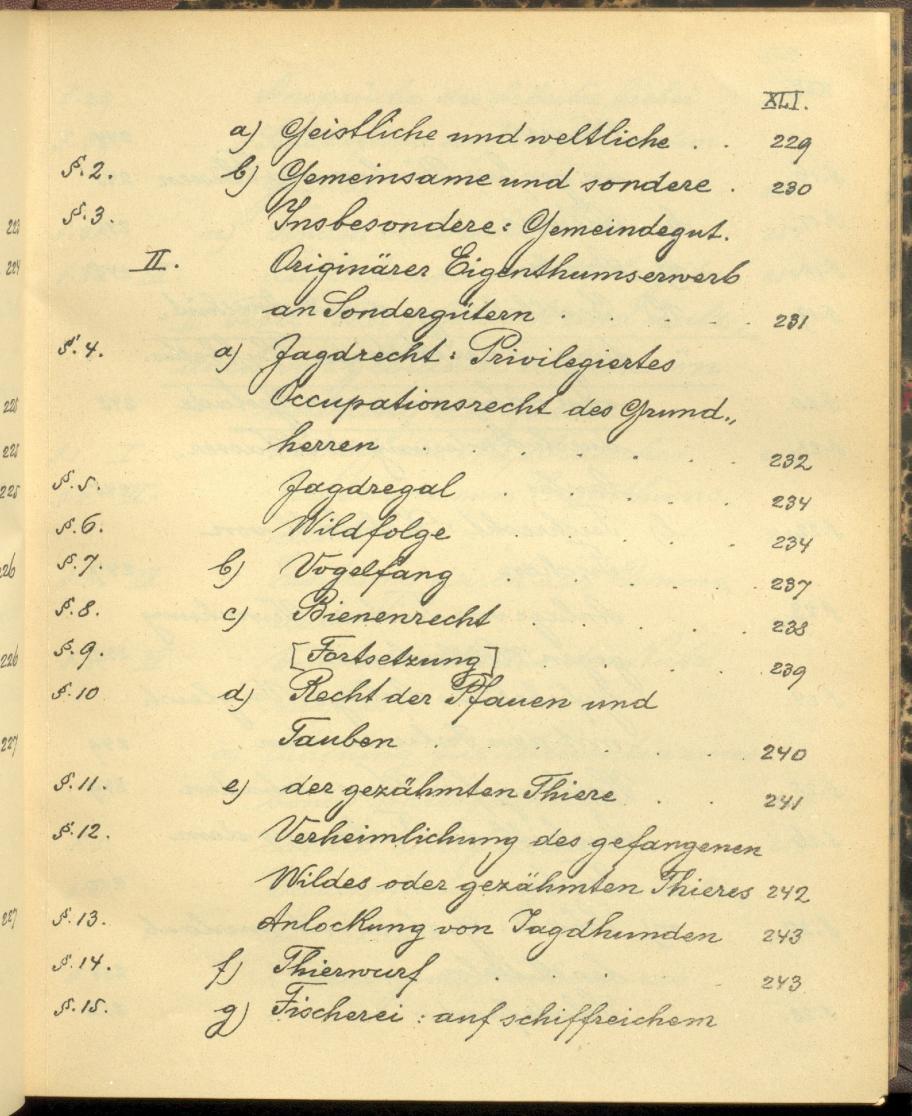 XLI.
a) Geistliche und weltliche . . 229
§. 2. b) Gemeinsame und sondere . 230
§. 3. Insbesondere: Gemeindegut.
II. Originärer Eigenthumserwerb
an Sondergütern . . . . . 231
§. 4. a) Jagdrecht: Privilegiertes
Occupationsrecht des Grund„
herren . . . . . . . 232
§. 5. Jagdregal . . . . . 234
§. 6. Wildfolge . . . . . 234
§. 7. b) Vogelfang . . . . . 237
§. 8. c) Bienenrecht . . . . 238
§. 9. [Fortsetzung] . . . . 239
§. 10 d) Recht der Pfauen und
Tauben . . . . . . 240
§. 11. e) der gezähmten Thiere . . 241
§. 12. Verheimlichung des gefangenen
Wildes oder gezähmten Thieres 242
§. 13. Anlockung von Jagdhunden 243
§. 14. f) Thierwurf . . . . 243
§. 15. g) Fischerei: auf schiffreichem
223
224
225
226
226
227
227